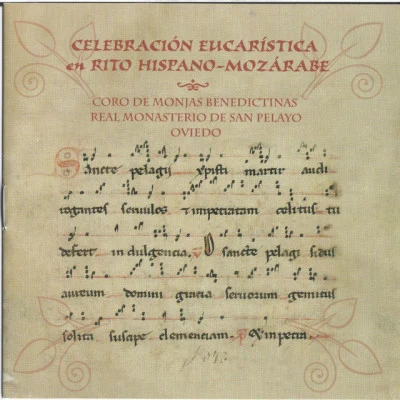 CELEBRACIÓN EUCARÍSTICA
en RITO HISPANO-MOZÁRABE
CORO DE MONJAS BENEDICTINAS
REAL MONASTERIO DE SAN PELAYO
OVIEDO
Sancte pelagii xpisti martir audi
rogantes seruulos & impetratam celitus tu
defert indulgencia. sancte pelagi sidus
aureum domini gracia seruorum gemitus
solita suscipe clemenciam.